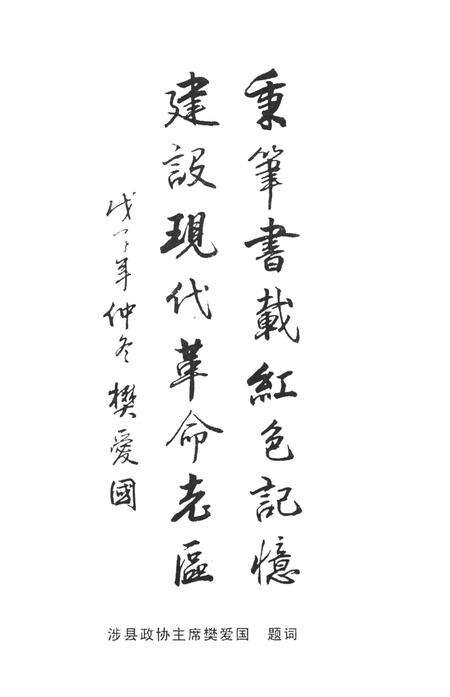 秉筆書載紅色記憶
建設現代革命老區
戊子年仲冬 樊愛國
涉县政协主席樊爱国　题词